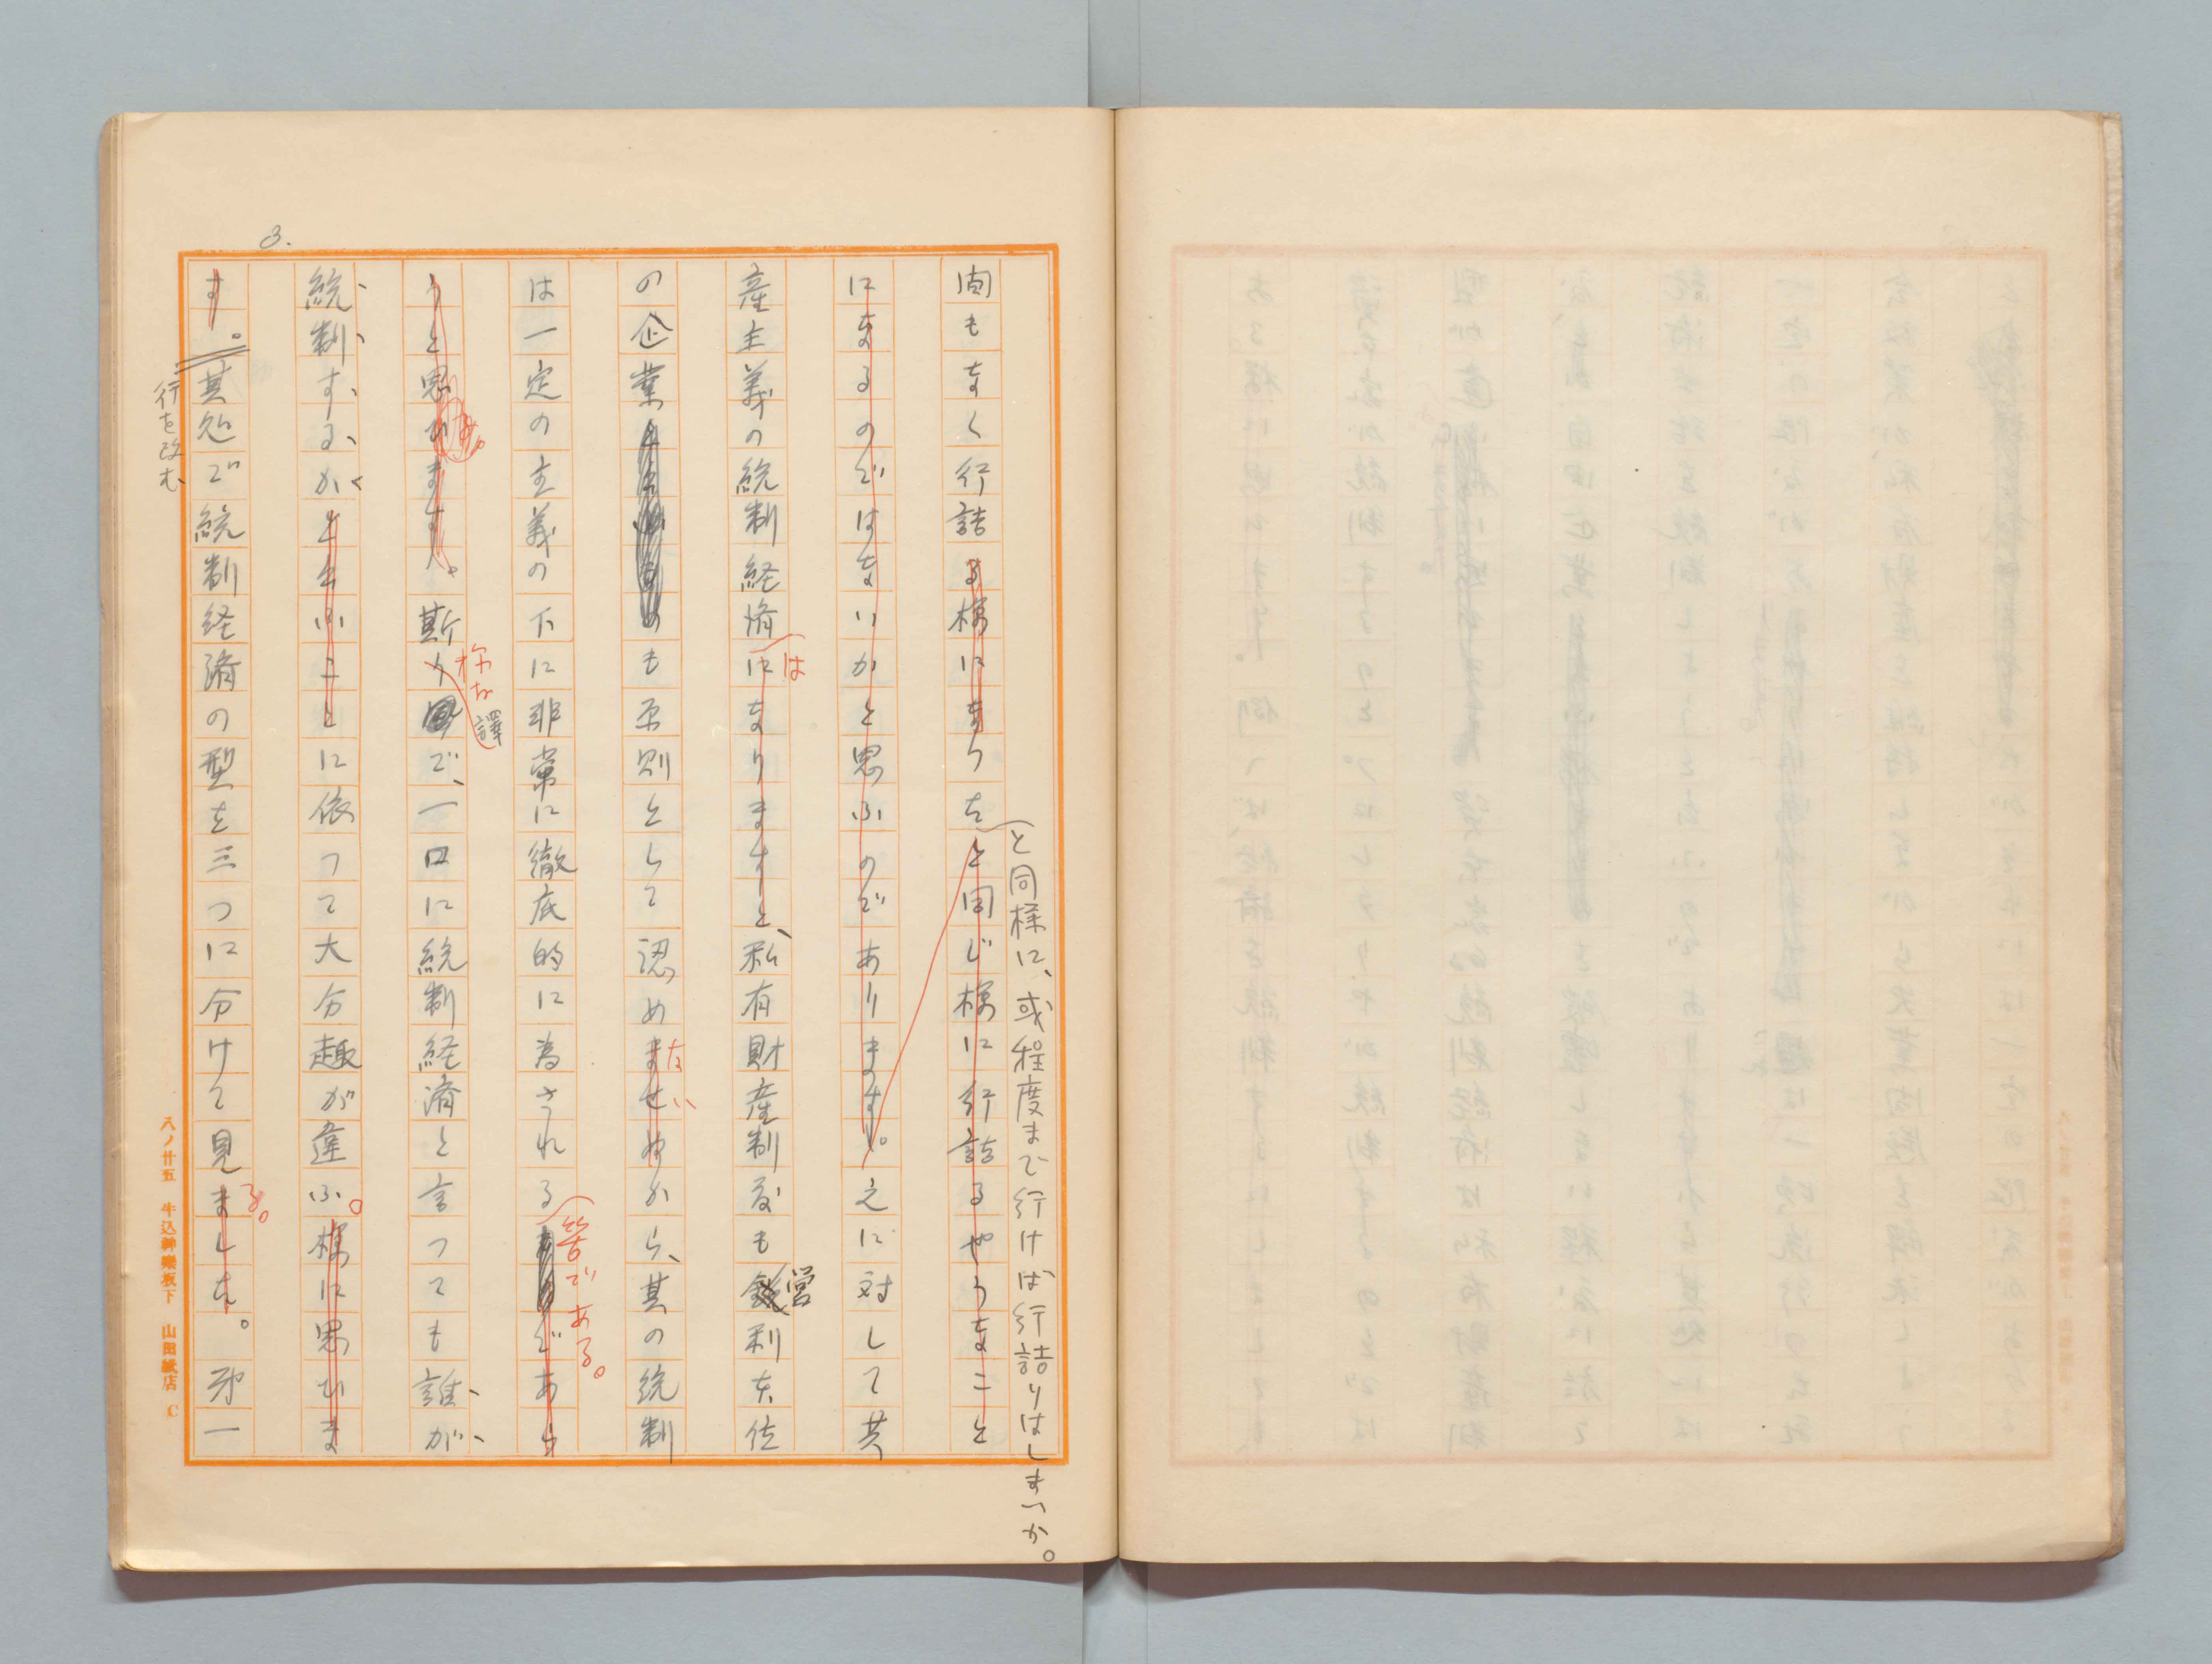 3.
と同様に、或程度まで行けば行詰りはしまいか。
間もなく行詰る様になつたと同じ様に行詰るやうなこと
になるのではないかと思ふのであります。之に対して共
産主義の統制経済になりますと、私有財産制度も営利本位
は
の企業も原則として認めませぬから、其の統制
ない
は一定の主義の下に非常に徹底的に為されるであら
筈である。
うと思ひます。斯で、一口に統制経済と言つても誰が、
様な譯
統制するかと云ふことに依つて大分趣が違ふ。様に思ひま
す。其処で統制経済の型を三つに分けて見ました。第一
る。
行を改む
八ノ廿五 牛込神楽坂下 山田紙店 C